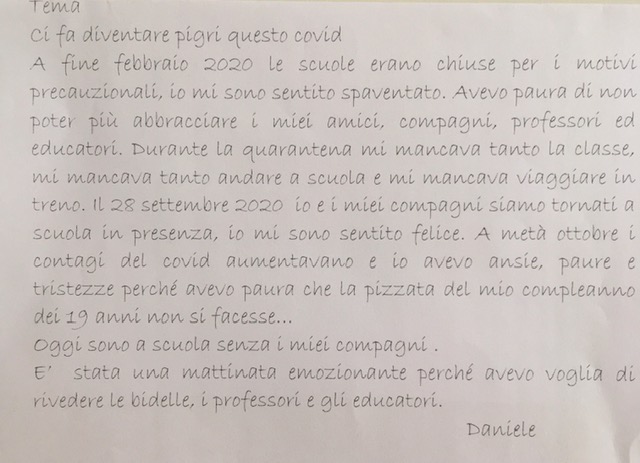 Tema
Ci fa diventare pigri questo covid
A fine febbraio 2020 le scuole erano chiuse per i motivi
precauzionali, io mi sono sentito spaventato. Avevo paura di non
poter più abbracciare i miei amici, compagni, professori ed
educatori. Durante la quarantena mi mancava tanto la classe,
mi mancava tanto andare a scuola e mi mancava viaggiare in
treno. Il 28 settembre 2020 io e i miei compagni siamo tornati a
scuola in presenza, io mi sono sentito felice. A metà ottobre i
contagi del covid aumentavano e io avevo ansie, paure e
tristezze perché avevo paura che la pizzata del mio compleanno
dei 19 anni non si facesse...
Oggi sono a scuola senza i miei compagni .
E' stata una mattinata emozionante perché avevo voglia di
rivedere le bidelle, i professori e gli educatori.
Daniele